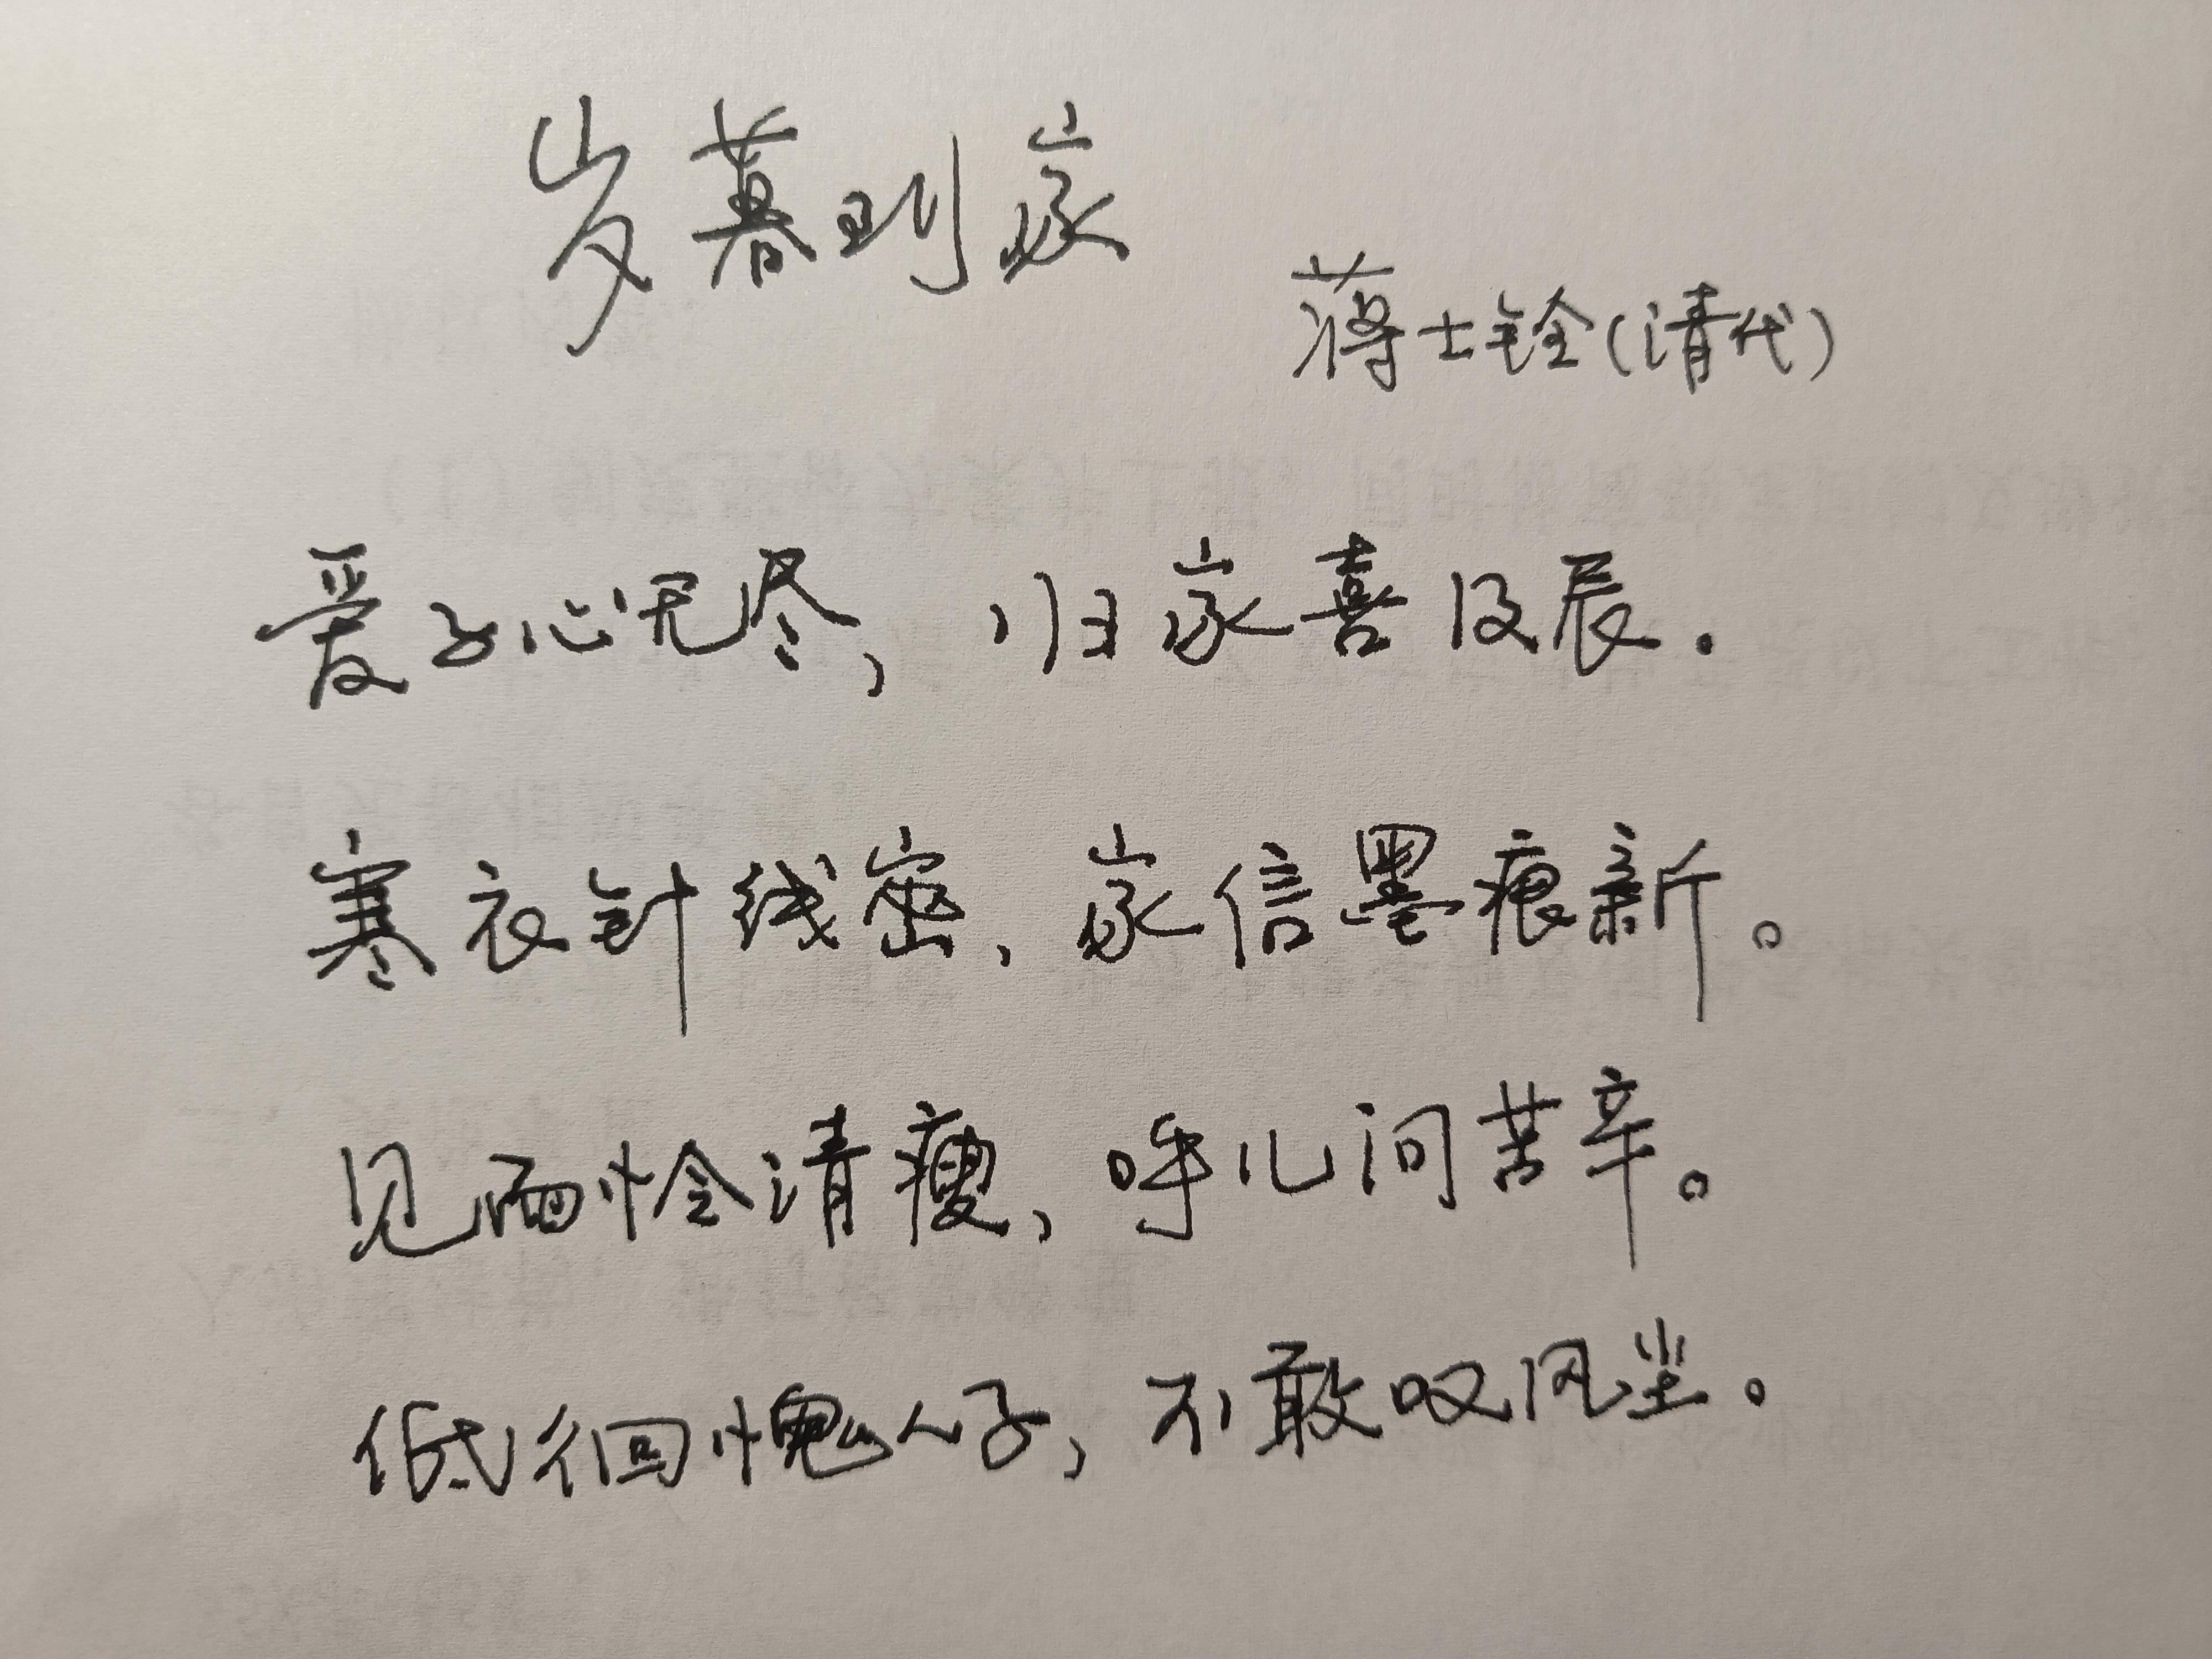 岁暮到家
蒋士铨(清代)
爱子心无尽，归家喜及辰.
寒衣针线密，家信墨痕新。
见面怜清瘦，呼儿问苦辛。
低徊愧人子，不敢叹风尘。